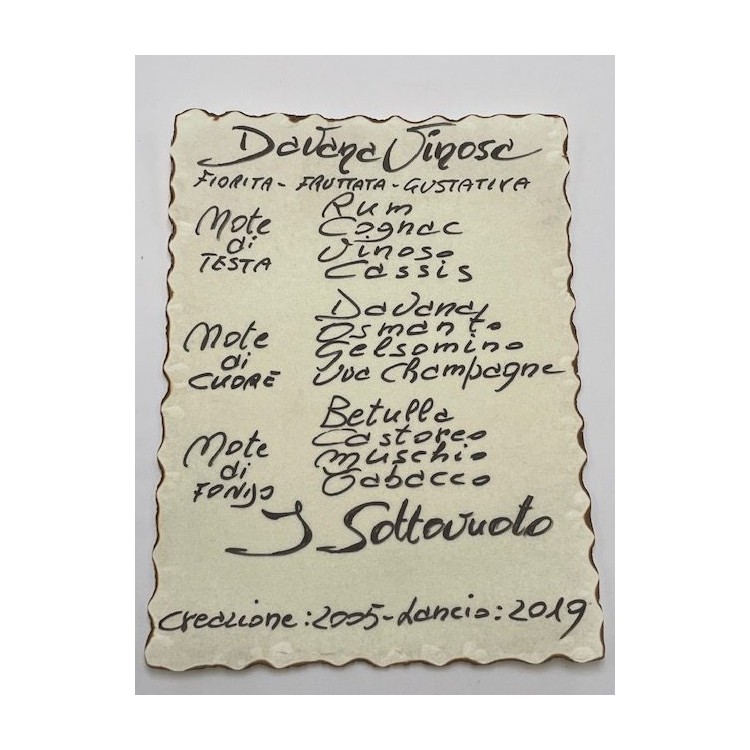 Davana Vinosa
FIORITA - FRUTTATA - GUSTATIVA
Note di TESTA
Rum
Cognac
Vinoso
Cassis
Note di CUORE
Davana
Osmanto
Gelsomino
Uva Champagne
Note di FONDO
Betulla
Castoreo
Muschio
Tabacco
I Sottovuoto
Creazione: 2005 - Lancio: 2019